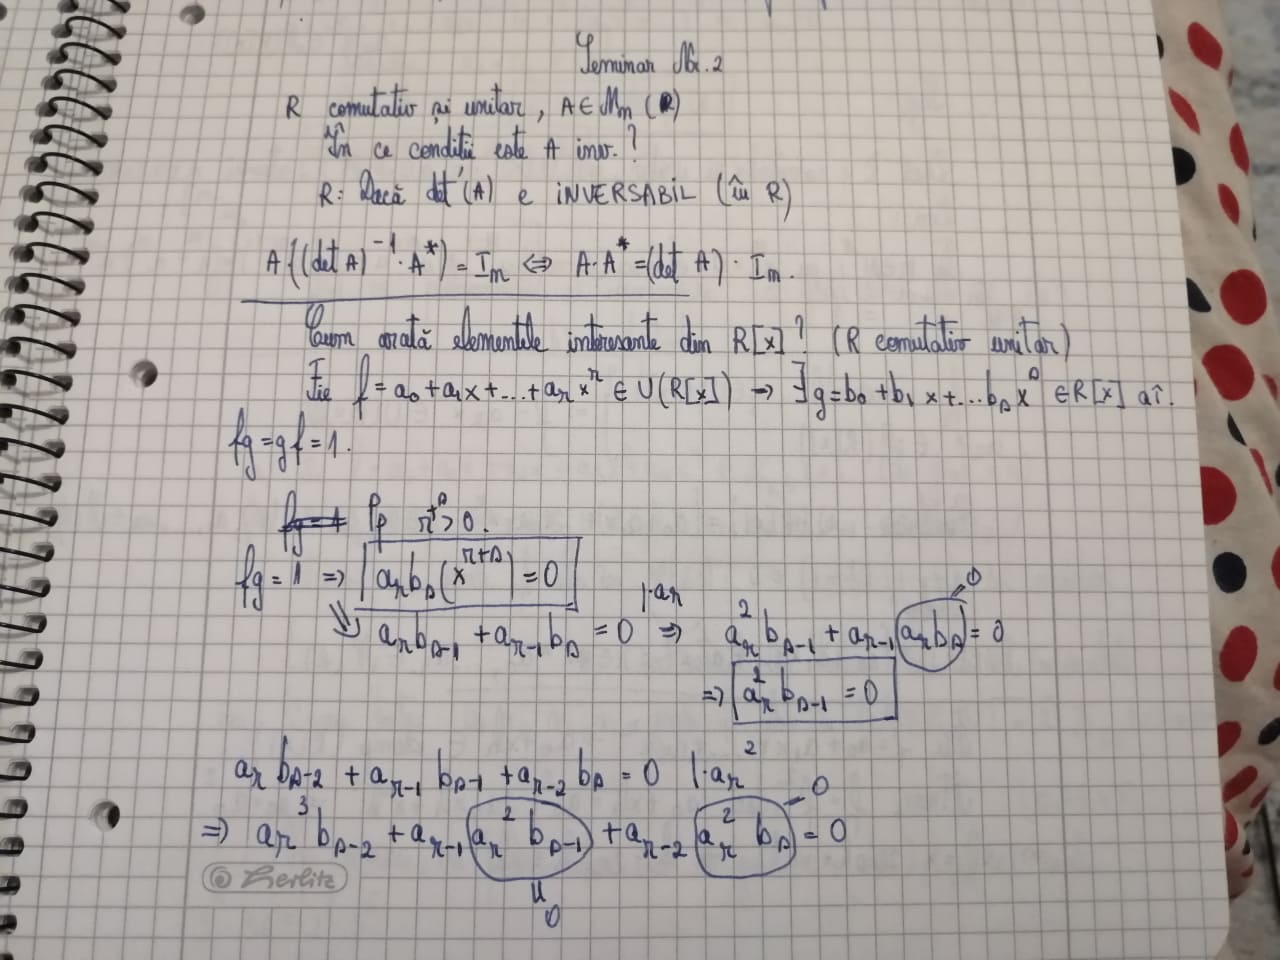 Seminar Nr. 2
R comutativ și unitar, A ∈ Mn (R)
În ce condiții este A inv.?
R: Dacă det (A) e INVERSABIL (în R)
A·((det A)⁻¹·A*) = In ⇔ A·A* = (det A)·In.
Cum arată elementele interesante din R[x]? (R comutativ unitar)
Fie f = a₀ + a₁x + ... + aᵣxʳ ∈ U(R[x]) → ∃ g = b₀ + b₁x + ... bₛxˢ ∈ R[x] aî.
fg = gf = 1.
Pp r+s > 0.
fg = 1 ⇒ aᵣbₛ (xʳ⁺ˢ) = 0
⇒ aᵣbₛ₋₁ + aᵣ₋₁bₛ = 0 |·aᵣ ⇒ aᵣ²bₛ₋₁ + aᵣ₋₁ aᵣbₛ = 0
= 0
⇒ aᵣ²bₛ₋₁ = 0
aᵣbₛ₋₂ + aᵣ₋₁bₛ₋₁ + aᵣ₋₂bₛ = 0 |·aᵣ²
⇒ aᵣ³bₛ₋₂ + aᵣ₋₁ aᵣ²bₛ₋₁ + aᵣ₋₂ aᵣ²bₛ = 0
= 0
= 0
© Herlitz